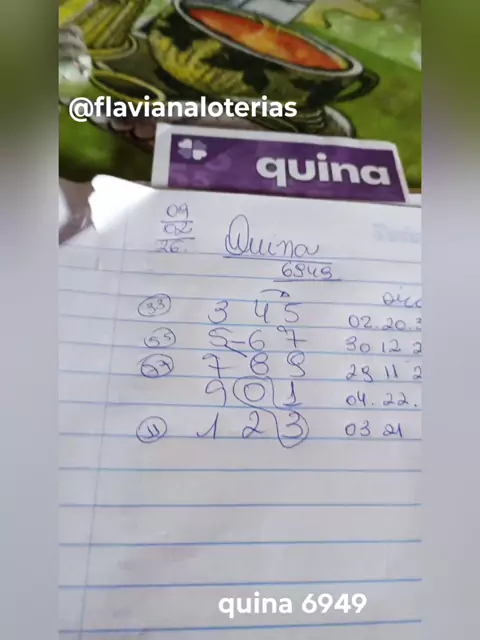 @flavianaloterias
quina
09
02
26.
Quina
6949
33 3 4 5 02.20.3
55 5-6 7 30 12 2
7 8 9 29 11 2
9 0 1 04.22.
11 1 2 3 03 21
quina 6949